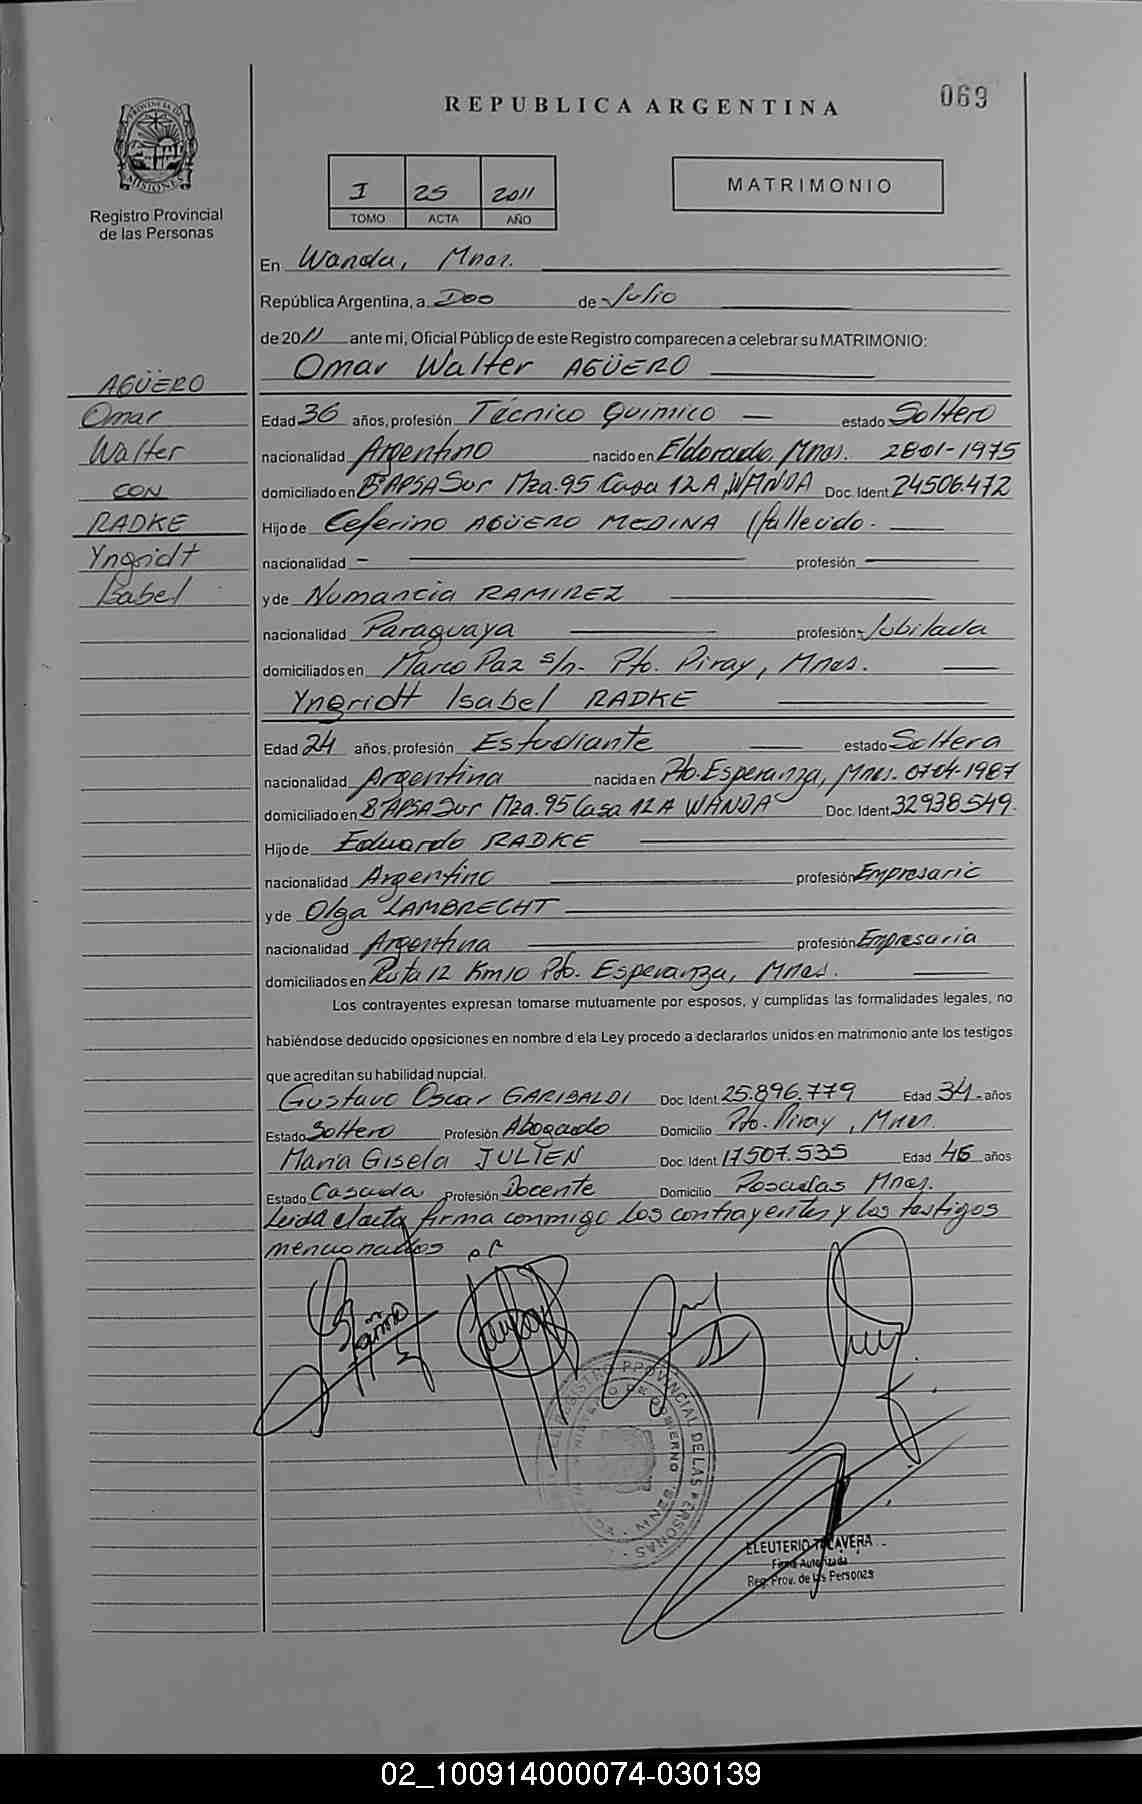 REPUBLICA ARGENTINA
069
PROVINCIA DE MISIONES
Registro Provincial
de las Personas
I 25 2011
TOMO ACTA AÑO
MATRIMONIO
En Wanda, Mnes.
República Argentina, a Dos de Julio
de 2011 ante mi, Oficial Público de este Registro comparecen a celebrar su MATRIMONIO:
Omar Walter AGÜERO
AGÜERO
Omar
Walter
CON
RADKE
Yngridt
Isabel
Edad 36 años, profesión Técnico Químico — estado Soltero
nacionalidad Argentino nacido en Eldorado, Mnes. 28-01-1975
domiciliado en Bº APSA Sur Mza. 95 Casa 12 A, WANDA Doc. Ident. 24506.472
Hijo de Ceferino AGÜERO MEDINA (fallecido.
nacionalidad — profesión
y de Numancia RAMIREZ
nacionalidad Paraguaya profesión Jubilada
domiciliados en Marco Paz s/n. Pto. Piray, Mnes.
Yngridt Isabel RADKE
Edad 24 años, profesión Estudiante — estado Soltera
nacionalidad Argentina nacida en Pto. Esperanza, Mnes. 07-04-1987
domiciliado en Bº APSA Sur Mza. 95 Casa 12 A WANDA Doc. Ident. 32938.549.
Hijo de Eduardo RADKE
nacionalidad Argentino profesión Empresario
y de Olga LAMBRECHT
nacionalidad Argentina profesión Empresaria
domiciliados en Ruta 12 Km 10 Pto. Esperanza, Mnes.
Los contrayentes expresan tomarse mutuamente por esposos, y cumplidas las formalidades legales, no
habiéndose deducido oposiciones en nombre d ela Ley procedo a declararlos unidos en matrimonio ante los testigos
que acreditan su habilidad nupcial.
Gustavo Oscar GARIBALDI Doc. Ident. 25.896.779 Edad 34 años
Estado Soltero Profesión Abogado Domicilio Pto. Piray, Mnes.
Maria Gisela JULIEN Doc. Ident. 17507.535 Edad 46 años
Estado Casada Profesión Docente Domicilio Posadas Mnes.
Leida el acta firma conmigo los contrayentes y los testigos
mencionados
REGISTRO PROVINCIAL DE LAS PERSONAS
MINISTERIO DE GOBIERNO
ELEUTERIO TALAVERA
Firma Autorizada
Reg. Prov. de las Personas
02_100914000074-030139